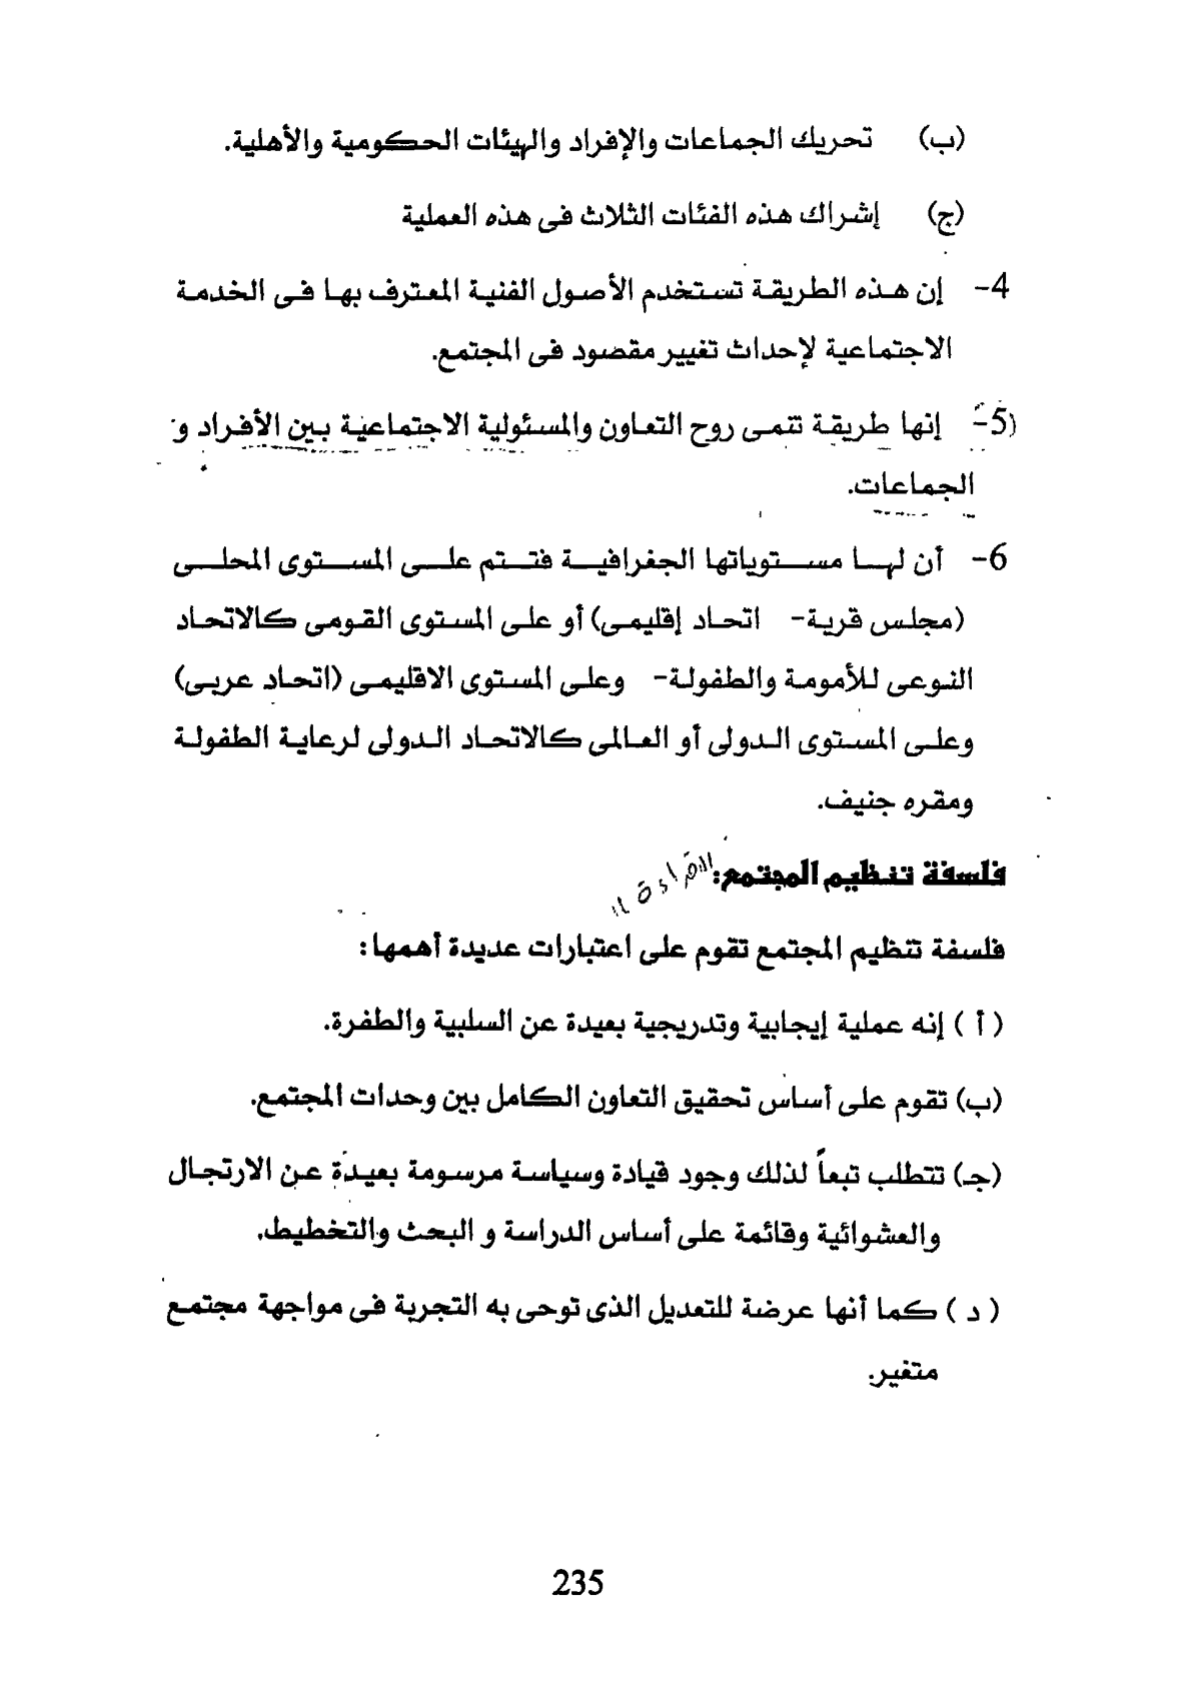 (ب) تحريك الجماعات والإفراد والهيئات الحكومية والأهلية.
(ج) إشراك هذه الفئات الثلاث فى هذه العملية
4- إن هذه الطريقة تستخدم الأصول الفنية المعترف بها فى الخدمة
الاجتماعية لإحداث تغيير مقصود فى المجتمع.
5- إنها طريقة تنمى روح التعاون والمسئولية الاجتماعية بين الأفراد و
الجماعات.
6- أن لها مستوياتها الجغرافية فتتم على المستوى المحلى
(مجلس قرية- اتحاد إقليمى) أو على المستوى القومى كالاتحاد
النوعى للأمومة والطفولة- وعلى المستوى الاقليمى (اتحاد عربى)
وعلى المستوى الدولى أو العالمى كالاتحاد الدولى لرعاية الطفولة
ومقره جنيف.
فلسفة تنظيم المجتمع: "قراءة"
فلسفة تنظيم المجتمع تقوم على اعتبارات عديدة أهمها:
( أ ) إنه عملية إيجابية وتدريجية بعيدة عن السلبية والطفرة.
(ب) تقوم على أساس تحقيق التعاون الكامل بين وحدات المجتمع.
(جـ) تتطلب تبعاً لذلك وجود قيادة وسياسة مرسومة بعيدة عن الارتجال
والعشوائية وقائمة على أساس الدراسة و البحث والتخطيط.
( د ) كما أنها عرضة للتعديل الذى توحى به التجربة فى مواجهة مجتمع
متغير.
235